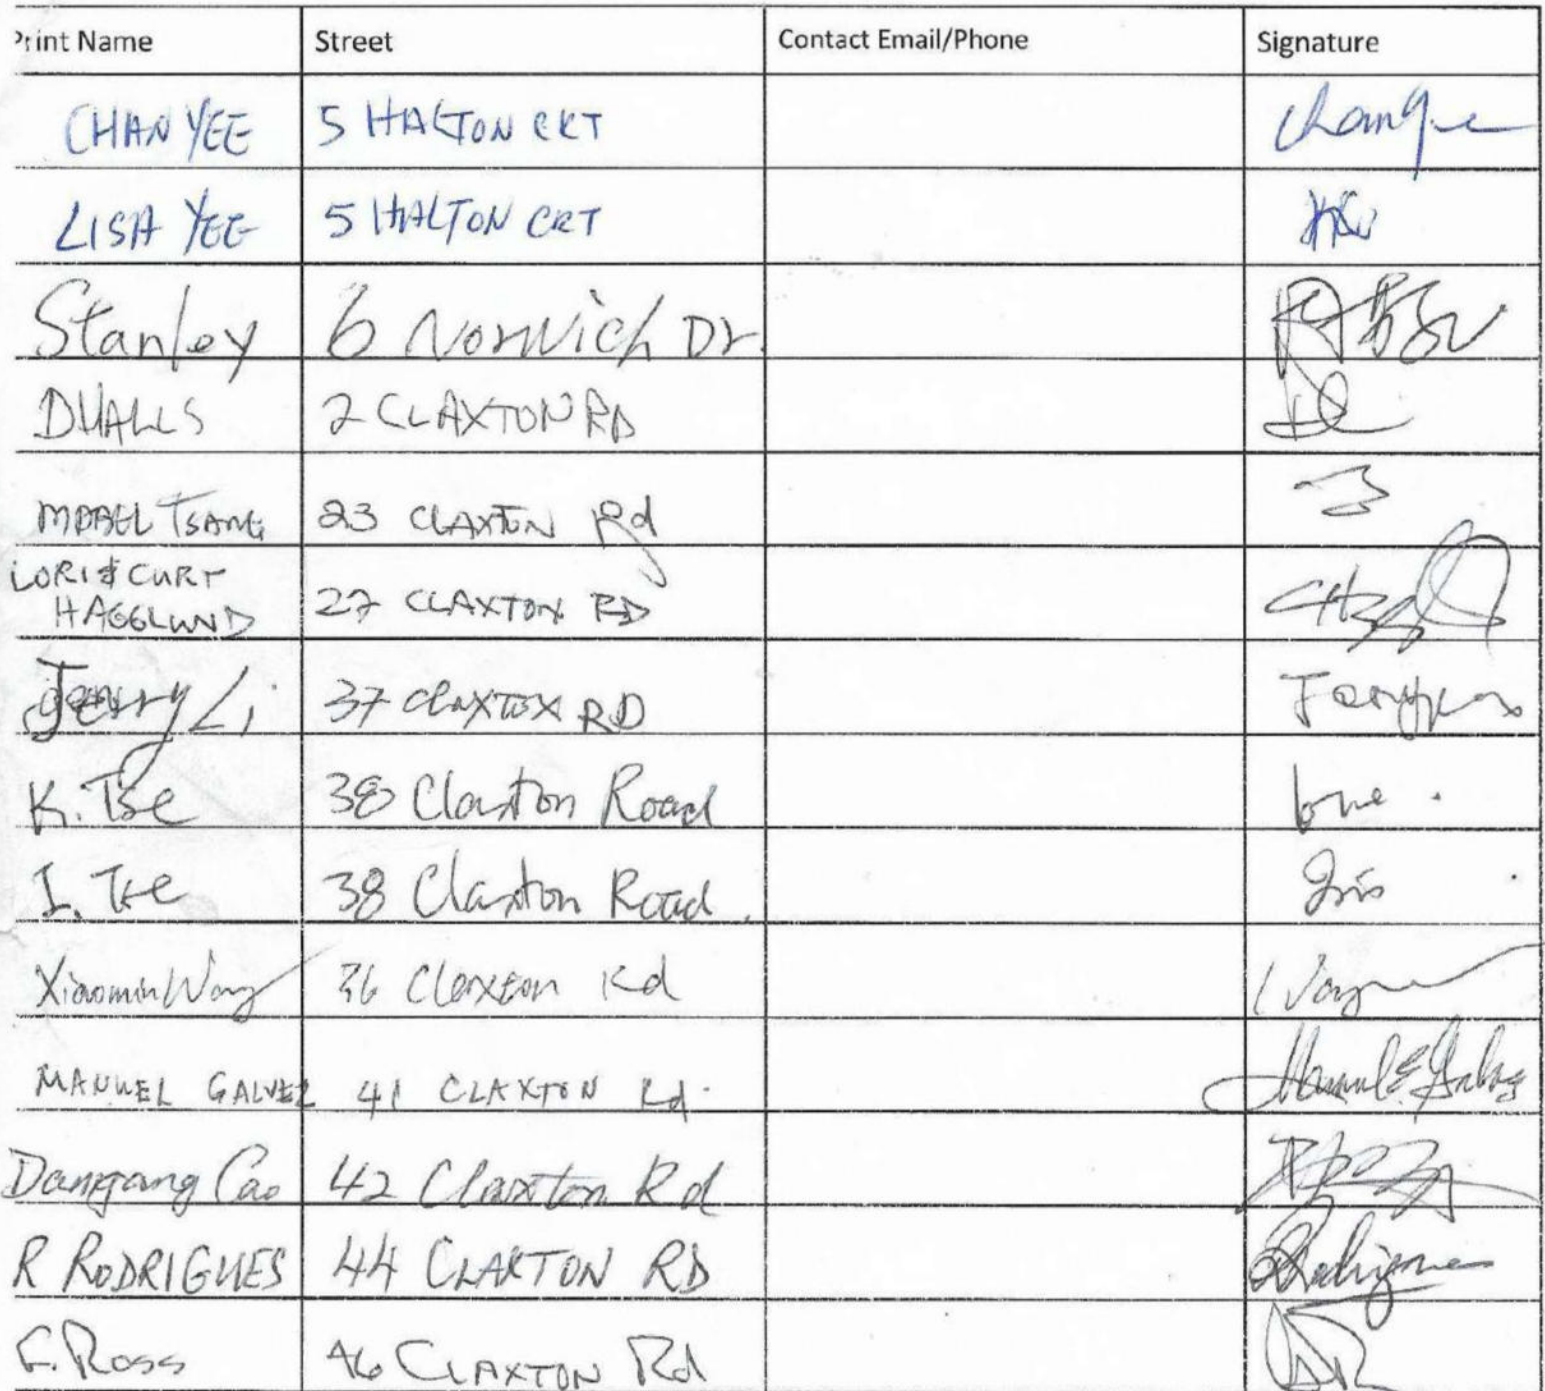 Print Name Street Contact Email/Phone Signature
CHAN YEE 5 HALTON CRT
LISA YEE 5 HALTON CRT
Stanley 6 Norwich Dr.
D HALLS 2 CLAXTON RD
MABEL TSANG 23 CLAXTON Rd
LORI & CURT
HAGGLUND 27 CLAXTON RD
Jerry Li 37 CLAXTOX RD
K. Tse 38 Claxton Road
I. Tse 38 Claxton Road. Iris
Xiaomin Wang 36 Claxton Rd
MANUEL GALVEZ 41 CLAXTON Rd. Manuel E. Galvez
Dangang Cao 42 Claxton Rd
R RODRIGUES 44 CLAXTON RD Rodrigues
F. Ross 46 CLAXTON Rd